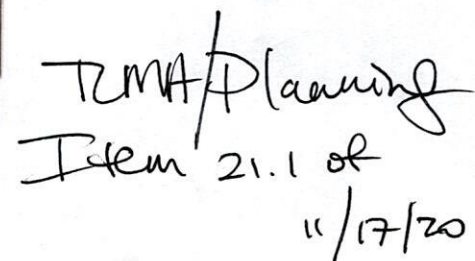 TLMA/Planning
Item 21.1 of
11/17/20